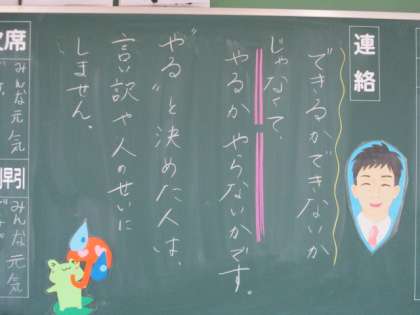 連絡
できるかできないか
じゃなくて、
やるか やらないかです。
"やる"と決めた人は、
言い訳や人のせいに
しません。
欠席
みんな元気
早引
みんな元気